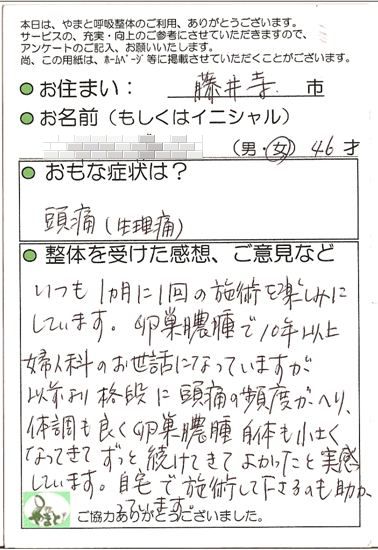 本日は、やまと呼吸整体のご利用、ありがとうございます。
サービスの、充実・向上のご参考にさせていただきますので、
アンケートのご記入、お願いいたします。
尚、この用紙は、ホームページ等に掲載させていただくことがございます。
お住まい： 藤井寺 市
お名前（もしくはイニシャル）
（男・女）46才
おもな症状は？
頭痛（生理痛）
整体を受けた感想、ご意見など
いつも1カ月に1回の施術を楽しみに
しています。卵巣膿腫で10年以上
婦人科のお世話になっていますが
以前より格段に頭痛の頻度がへり、
体調も良く卵巣膿腫自体も小さく
なってきてずっと続けてきてよかったと実感
しています。自宅で施術して下さるのも助か
っています。
やまと
ご協力ありがとうございました。